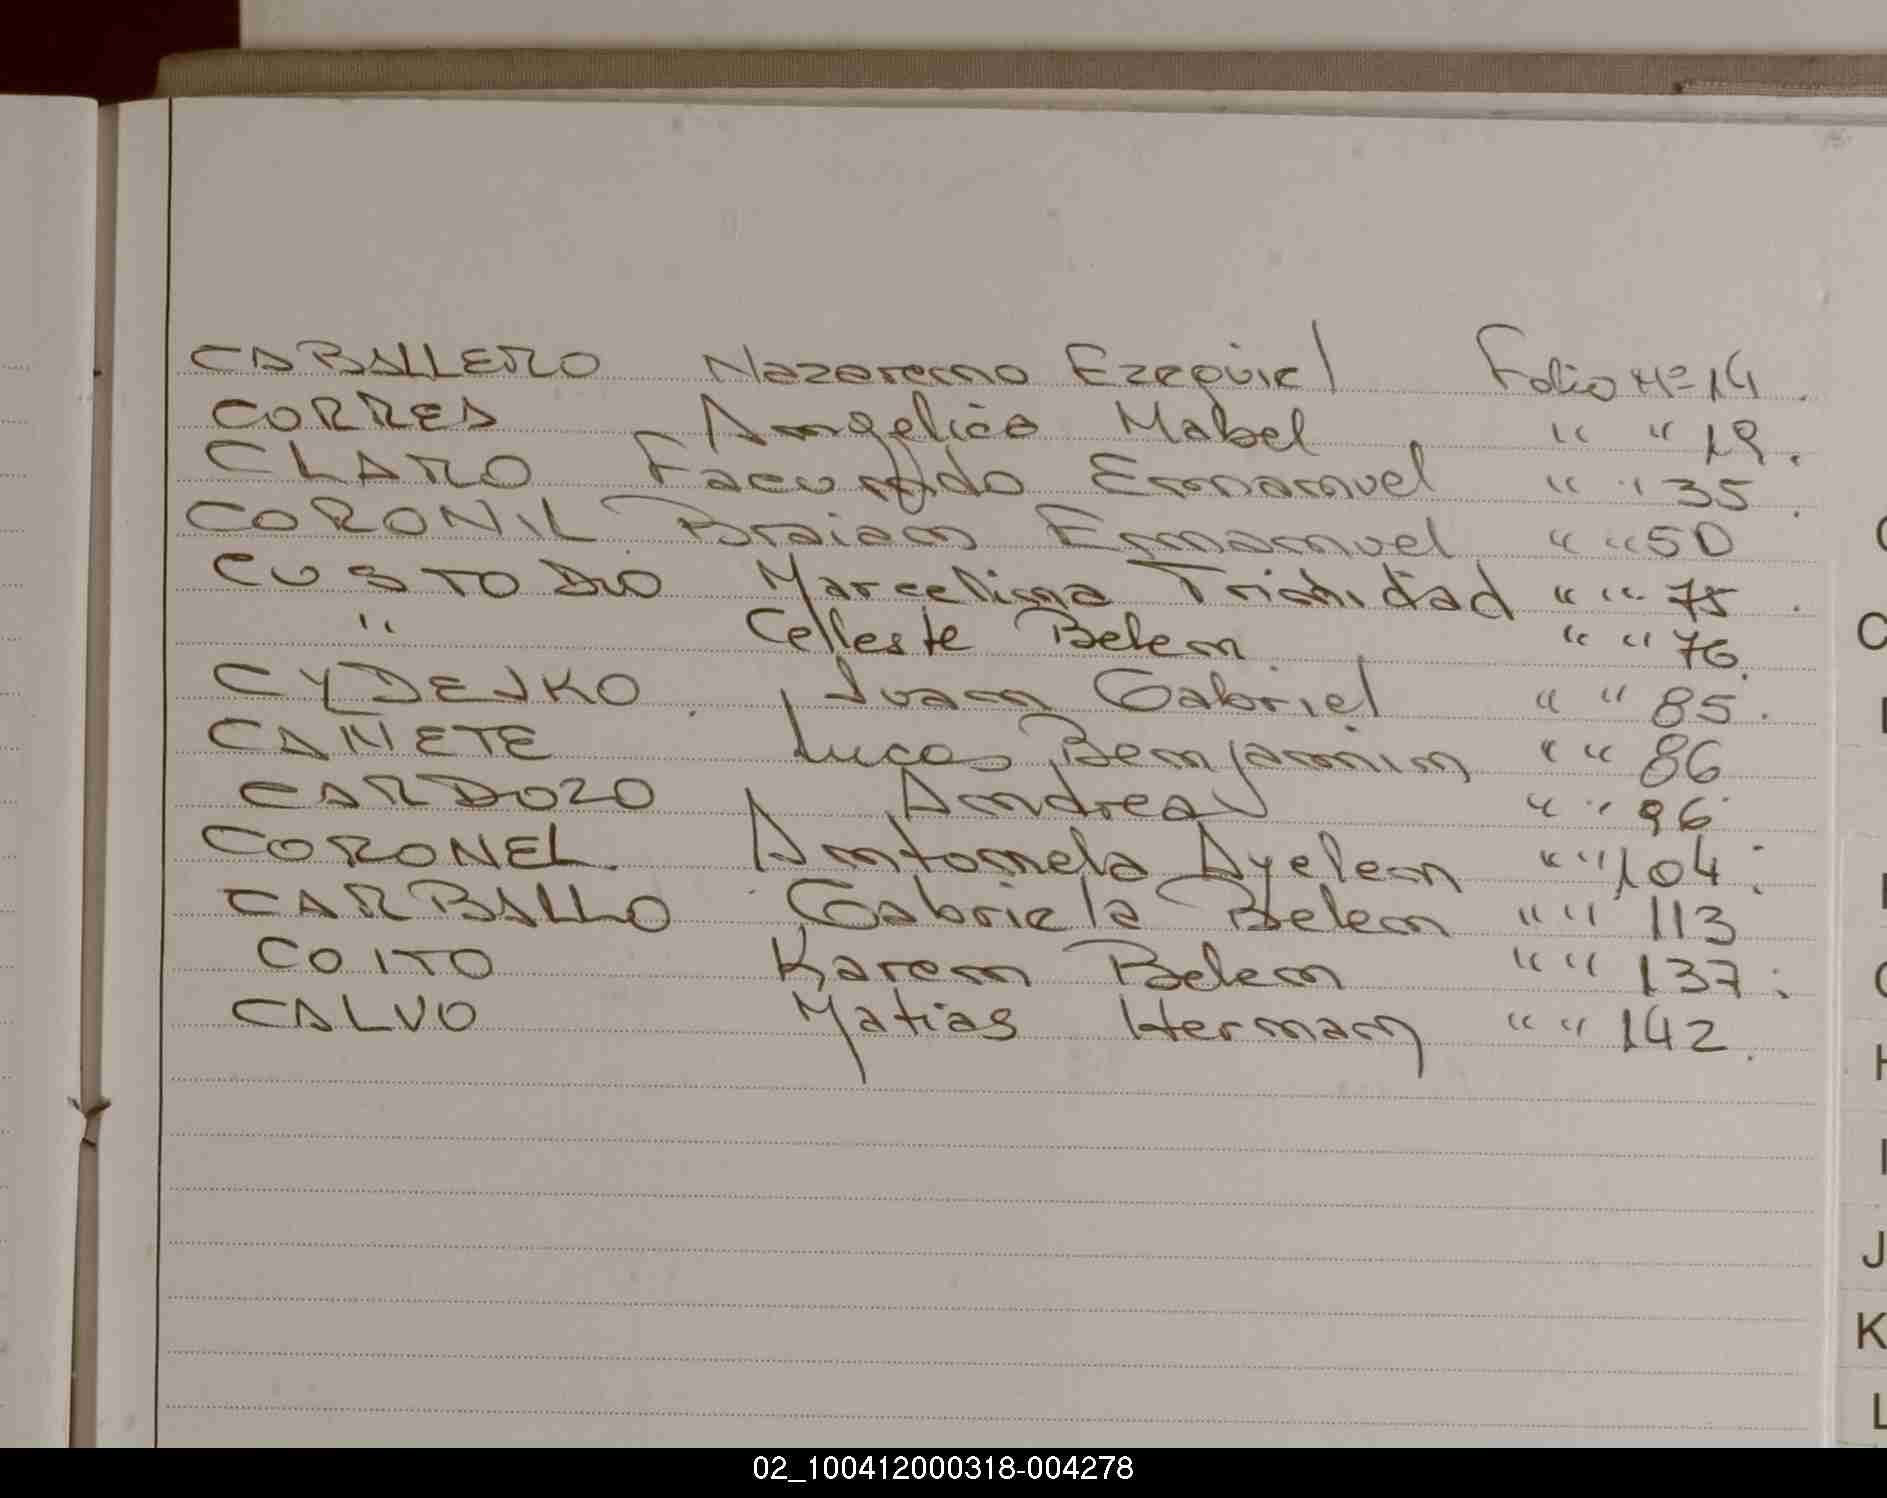 CABALLERO Nazareno Ezequiel Folio Nº 14.
CORRES Angelica Mabel " " 19.
CLARO Facundo Emmanuel " " 35.
CORONIL Braian Emmanuel " " 50
CUSTODIO Marcelina Trinidad " " 75.
" Celleste Belem " " 76.
CYDEJKO Juan Gabriel " " 85.
CAÑETE Lucas Benjamin " " 86
CARDOZO Andrea " " 96
CORONEL Antonela Ayelen " " 104.
CARBALLO Gabriela Belen " " 113
COITO Karem Belen " " 137.
CALVO Matias Herman " " 142.
J
K
L
02_100412000318-004278